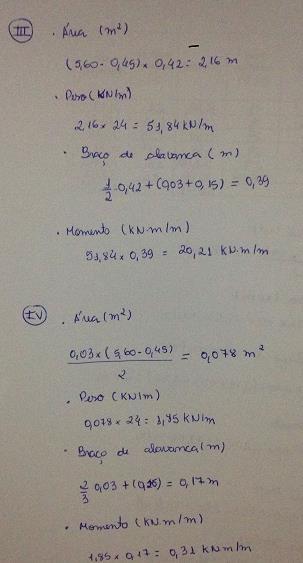 III . Área (m²)
(5,60 - 0,45) × 0,42 = 2,16 m
. Peso (kN/m)
2,16 × 24 = 51,84 kN/m
. Braço de alavanca (m)
1/2 0,42 + (0,03 + 0,15) = 0,39
. Momento (KN.m/m)
51,84 × 0,39 = 20,21 KN.m/m
IV . Área (m²)
0,03 × (5,60 - 0,45) / 2 = 0,078 m²
. Peso (KN/m)
0,078 × 24 = 1,85 KN/m
. Braço de alavanca (m)
2/3 0,03 + (0,15) = 0,17 m
. Momento (KN.m/m)
1,85 × 0,17 = 0,31 KN/m